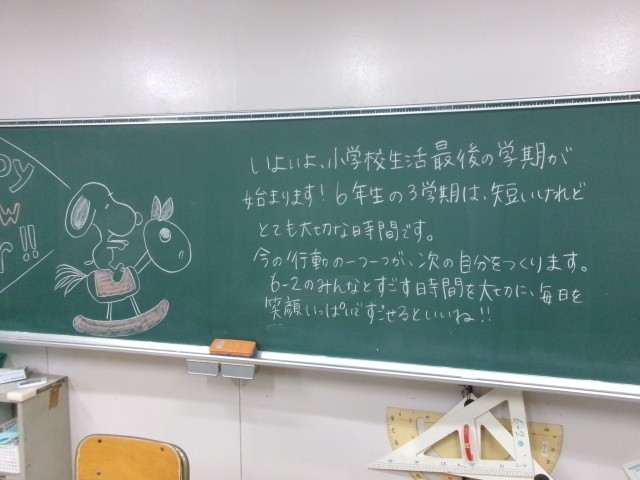 py
w
r!!
いよいよ、小学校生活最後の学期が
始まります！6年生の3学期は、短いけれど
とても大切な時間です。
今の行動の一つ一つが、次の自分をつくります。
6-2のみんなとすごす時間を大切に、毎日を
笑顔いっぱいですごせるといいね!!
6-2